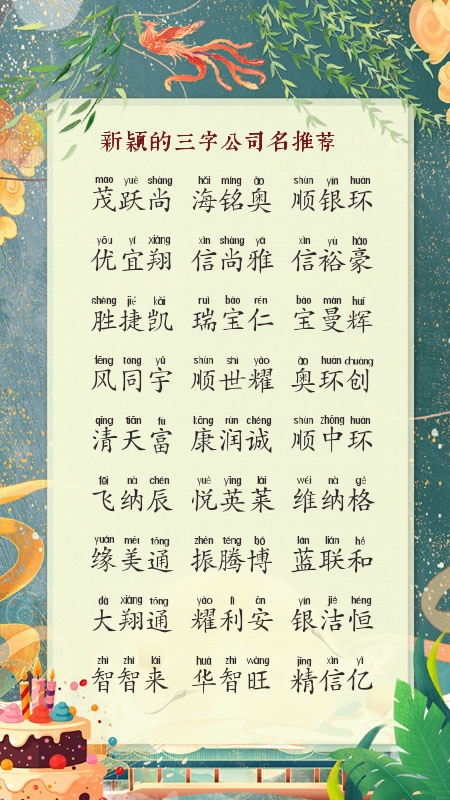 新颖的三字公司名推荐
mào yuè shàng hǎi míng ào shùn yín huán
茂跃尚 海铭奥 顺银环
yōu yí xiáng xìn shàng yǎ xìn yù háo
优宜翔 信尚雅 信裕豪
shèng jié kǎi ruì bǎo rén bǎo màn huī
胜捷凯 瑞宝仁 宝曼辉
fēng tóng yǔ shùn shì yào ào huán chuàng
风同宇 顺世耀 奥环创
qīng tiān fù kāng rùn chéng shùn zhōng huán
清天富 康润诚 顺中环
fēi nà chén yuè yīng lái wéi nà gé
飞纳辰 悦英莱 维纳格
yuán měi tōng zhèn téng bó lán lián hé
缘美通 振腾博 蓝联和
dà xiáng tōng yào lì ān yín jié héng
大翔通 耀利安 银洁恒
zhì zhì lái huá zhì wàng jīng xìn yì
智智来 华智旺 精信亿